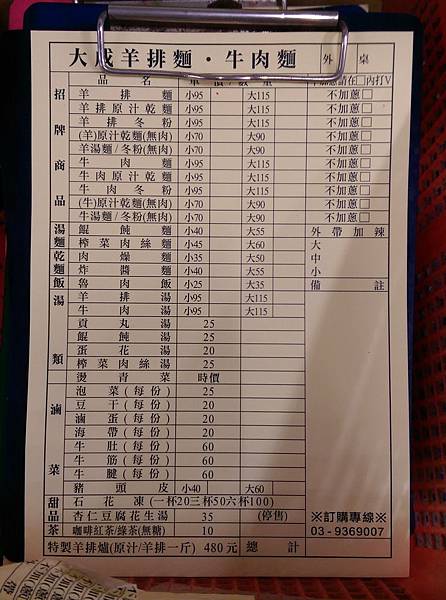 大成羊排麵·牛肉麵 外 桌
品名 單價/數量 不加蔥請在□內打V
招牌商品
羊排麵 小95 大115 不加蔥□
羊排原汁乾麵 小95 大115 不加蔥□
羊排冬粉 小95 大115 不加蔥□
(羊)原汁乾麵(無肉) 小70 大90 不加蔥□
羊湯麵/冬粉(無肉) 小70 大90 不加蔥□
牛肉麵 小95 大115 不加蔥□
牛肉原汁乾麵 小95 大115 不加蔥□
牛肉冬粉 小95 大115 不加蔥□
(牛)原汁乾麵(無肉) 小70 大90 不加蔥□
牛湯麵/冬粉(無肉) 小70 大90 不加蔥□
湯麵
餛飩麵 小40 大55 外帶加辣
榨菜肉絲麵 小45 大60 大
乾麵
肉燥麵 小35 大50 中
炸醬麵 小40 大55 小
飯 魯肉飯 小25 大35 備註
湯類
羊排湯 小95 大115
牛肉湯 小95 大115
貢丸湯 25
餛飩湯 25
蛋花湯 20
榨菜肉絲湯 25
燙青菜 時價
滷菜
泡菜(每份) 25
豆干(每份) 20
滷蛋(每份) 20
海帶(每份) 20
牛肚(每份) 60
牛筋(每份) 60
牛腱(每份) 60
豬頭皮 小40 大60
甜品
石花凍(一杯20三杯50六杯100)
杏仁豆腐花生湯 35 (停售)
茶 咖啡紅茶/綠茶(無糖) 10
特製羊排爐(原汁/羊排一斤) 480元 總計
※訂購專線※
03-9369007